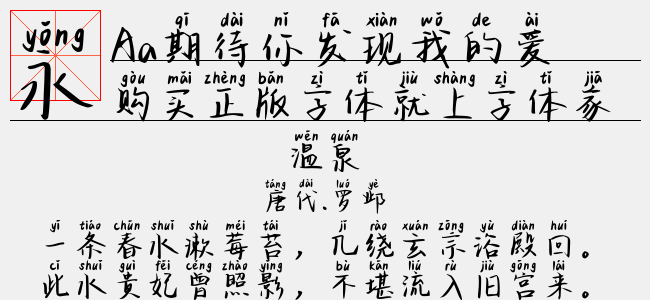 yǒng
永
qī dài nǐ fā xiàn wǒ de ài
Aa期待你发现我的爱
gòu mǎi zhèng bǎn zì tǐ jiù shàng zì tǐ jiā
购买正版字体就上字体家
wēn quán
温泉
táng dài luó yè
唐代.罗邺
yī tiáo chūn shuǐ shù méi tái jī rào xuán zōng yù diàn huí
一条春水漱莓苔，几绕玄宗浴殿回。
cǐ shuǐ guì fēi céng zhào yǐng bù kān liú rù jiù gōng lái
此水貴妃曾照影，不堪流入旧宫来。